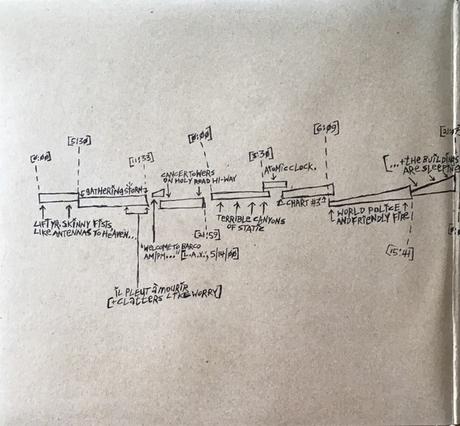 [6:09]
[0:00]
[5:30]
[0:00]
[11:33]
[5:30]
ATOMIC CLOCK.
[...+THE BUILDINGS
ARE SLEEPING
CANCER TOWERS
ON HOLY ROAD HI-WAY
GATHERING STORM
CHART #3
LIFT YR. SKINNY FISTS
LIKE ANTENNAS TO HEAVEN...
WORLD POLICE
AND FRIENDLY FIRE
TERRIBLE CANYONS
OF STATIC
[21:59]
"WELCOME TO BARCO
AM/PM..." [L.A.X.; 5/14/00]
[15:41]
IL PLEUT À MOURIR
[+CLATTERS LIKE WORRY]